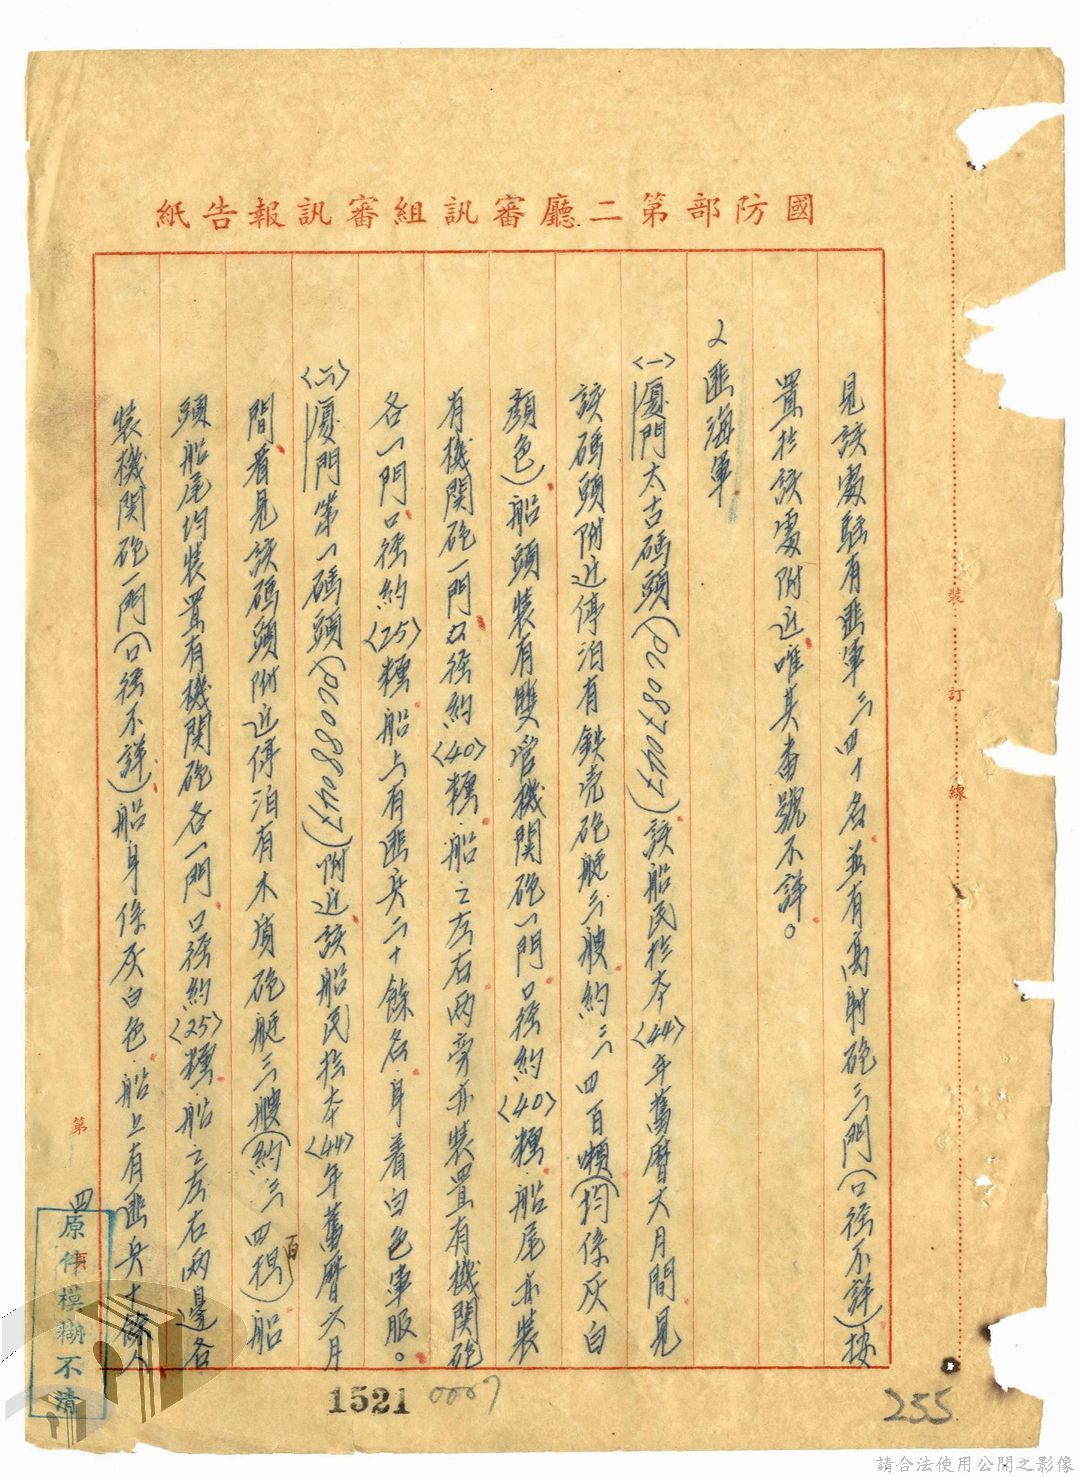 國防部第二廳審訊組審訊報告紙
見該處駐有匪軍三四十名並有高射砲三門(口徑不詳)按
置於該處附近唯其番號不詳。
2匪海軍
〈一〉廈門太古碼頭( 087047)該船民於本〈44〉年舊曆六月間見
該碼頭附近停泊有鉄壳砲艇三艘約三四百噸(均係灰白
顏色)船頭裝有雙管機関砲一門口徑約〈40〉糎.船尾亦裝
有機関砲一門口徑約〈40〉糎.船之左右兩旁亦裝置有機関砲
各一門口徑約〈25〉糎船上有匪兵二十餘名.身着白色軍服。
〈二〉廈門第一碼頭( 088047)附近該船民於本〈44〉年舊曆六月
間看見該碼頭附近停泊有木質砲艇三艘(約三四百)船
頭船尾均裝置有機関砲各一門口徑約〈25〉糎船之左右兩邊各
裝機関砲一門(口徑不詳)船身係灰白色.船上有匪兵十餘人
裝訂線
第四頁
原件模糊不清
1521
0007
255
請合法使用公開之影像